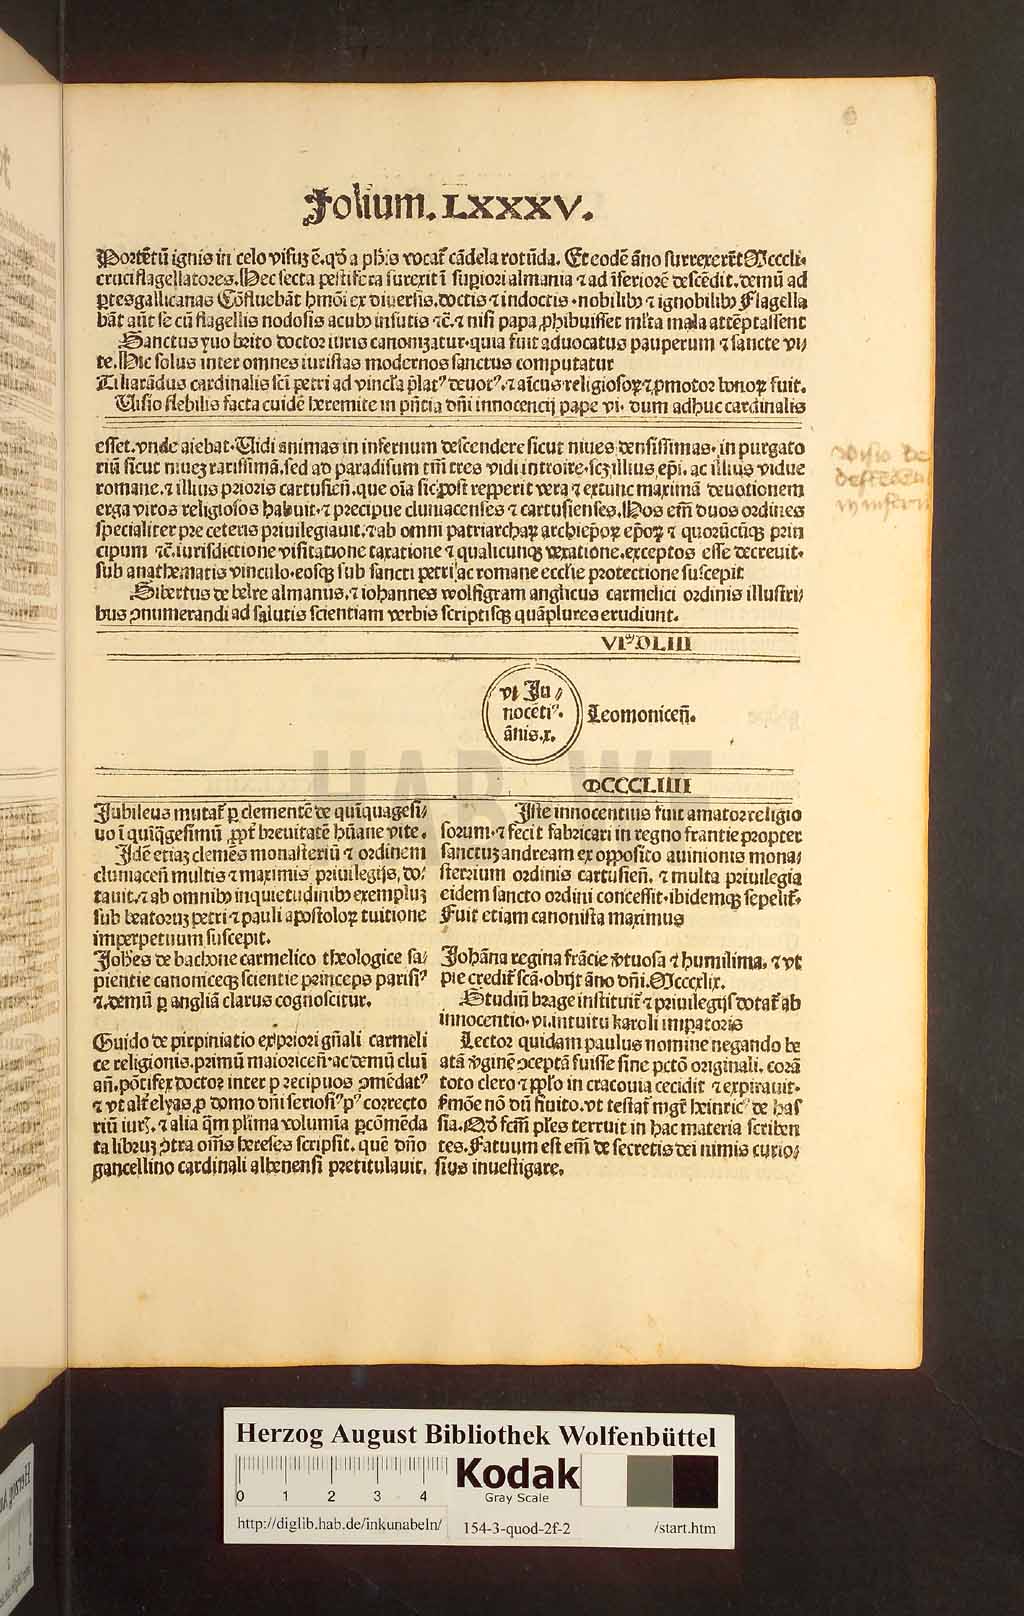 Folium. LXXXV.
Portētū ignis in celo visuȝ ē. qđ a phīs vocat̄ cādela rotūda. Et eodē āno surrexerūt Mcccli.
cruciflagellatores. Hec secta pestife ta surexit ī supiori almania ⁊ ad īferiorē descēdit. demū ad
ꝑtes gallicanas Cōfluebāt hmōi ex diuersis. doctis ⁊ indoctis . nobilibꝰ ⁊ ignobilibꝰ Flagella
bāt aūt se cū flagellis nodosis acubꝰ insutis ⁊c̄. ⁊ nisi papa ꝓhibuisset ml̄ta mala attēptassent
Sanctus yuo brito doctor iuris canonizatur. quia fuit aduocatus pauperum ⁊ sancte vi⸗
te. Hic solus inter omnes iuristas modernos sanctus computatur
Tiliarādus cardinalis sci petri ad vincl̄a p̄latꝰ deuotꝰ. ⁊ aīcus religiosoꝝ ⁊ ꝓmotor bonoꝝ fuit.
Uisio flebilis facta cuidē heremite in pn̄tia dn̄i innocencij pape vi. dum adhuc cardinalis
esset. vnde aiebat. Uidi animas in infernum descendere sicut niues densissimas. in purgato
riū sicut niueȝ rarissimā. sed ad paradisum tm̄ tres vidi introire. scȝ illius ep̄i. ac illius vidue
romane. ⁊ illius prioris cartusien̄. que oīa sic post repperit vera ⁊ extunc maximā deuotionem
erga viros religiosos habuit. ⁊ precipue cluniacenses ⁊ cartusienses. Hos em̄ duos ordines
specialiter pre ceteris priuilegiauit. ⁊ ab omni patriarchaꝝ archiep̄oꝝ ep̄oꝝ ⁊ quorūcūqꝫ prin
cipum ⁊c̄. iurisdictione visitatione taxatione ⁊ qualicunqꝫ vexatione. exceptos esse decreuit.
sub anathematis vinculo. eosqꝫ sub sancti petri ac romane eccl̄ie protectione suscepit
Sibertus de beke almanus. ⁊ iohannes wolfigram anglicus carmelici ordinis illustri⸗
bus ꝯnumerandi ad salutis scientiam verbis scriptisqꝫ quāplures erudiunt.
DLIII
vi In⸗
nocētiꝰ.
ānis. x.
Leomonicen̄.
MCCCLIIII
Jubileus mutat̄ ꝑ clementē de quīquagesi⸗
uo ī quīqꝫgesimū ꝓpt̄ breuitatē hūane vite.
Jdē etiaȝ clemēs monasteriū ⁊ ordinem
cluniacen̄ multis ⁊ maximis priuilegijs, do⸗
tauit. ⁊ ab omnibꝰ inquietudinibꝰ exempluȝ
sub beatoruȝ petri ⁊ pauli apostoloꝝ tuitione
imperpetuum suscepit.
Joh̄es de bachone carmelico theologice sa⸗
pientie canoniceqꝫ scientie princeps parisiꝰ
⁊. demū ꝑ angliā clarus cognoscitur.
Guido de pirpiniatio ex priori gn̄ali carmeli
ce religionis. primū maioricen̄. ac demū cluī
an̄. pōtifex doctor inter precipuos ꝯmēdatꝰ
⁊ vt alt̄ elyas ꝑ domo dn̄i seriosiꝰ pꝰ correcto
riū iurȝ. ⁊ alia qm̄ plīma volumīa ꝑcōmēda
ta libruȝ ꝯtra om̄s hereses scripsit. que dn̄o
gancellino cardinali albenensi pretitulauit.
Jste innocentius fuit amator religio
sorum. ⁊ fecit fabricari in regno frantie propter
sanctuȝ andream ex opposito auinionis mona⸗
sterrium ordinis cartusien̄. ⁊ multa priuilegia
eidem sancto ordini concessit. ibidemqꝫ sepelit̄.
Fuit etiam canonista maximus
Johāna regina frācie v̄tuosa ⁊ humilima. ⁊ vt
pie credit̄ scā. obijt āno dn̄i. Mcccxlix.
Studiū brage instituit̄ ⁊ priuilegijs dotat̄ ab
innocentio. vi. intuitu karoli impatoris
Lector quidam paulus nomine negando be
atā v̄ginē ꝯceptā fuisse sine pctō originali. corā
toto clero ⁊ pplo in cracouia cecidit ⁊ expirauit.
s̄mōe nō dū finito. vt testat̄ mgr̄ heinricꝰ de has
sia. Qđ fcm̄ pl̄es terruit in hac materia scriben
tes. Fatuum est em̄ de secretis dei nimis curio⸗
sius inuestigare.
Visio de
HAB WF
Herzog August Bibliothek Wolfenbüttel
0 1 2 3 4
Kodak
Gray Scale
http://diglib.hab.de/inkunabeln/ 154-3-quod-2f-2 /start.htm